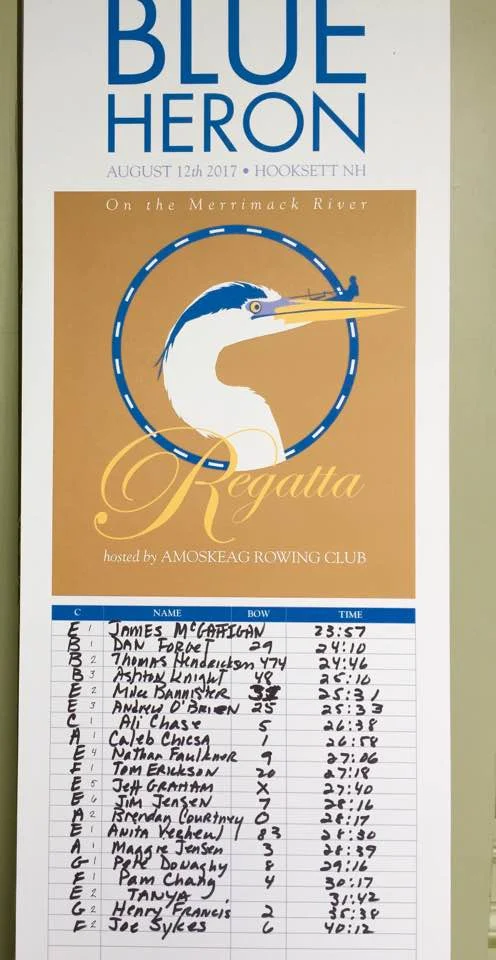 BLUE
HERON
AUGUST 12th 2017 • HOOKSETT NH
On the Merrimack River
Regatta
hosted by AMOSKEAG ROWING CLUB
C NAME BOW TIME
E 1 JAMES McGAFFIGAN 23:57
B 1 DAN FORGET 29 24:10
B 2 Thomas Hendricksen 474 24:46
B 3 Ashton Knight 48 25:10
E 2 Mike Bannister 25:31
E 3 Andrew O'BRIEN 25 25:33
C 1 Ali Chase 5 26:38
A 1 Caleb Chicsa 1 26:58
E 4 Nathan Faulkner 9 27:06
F 1 TOM ERICKSON 20 27:18
E 5 Jeff GRAHAM X 27:40
E 6 Jim Jensen 7 28:16
A 2 Brendan Courtney 0 28:17
E 1 Anita 83 28:30
A 1 Maggie Jensen 3 28:39
G 1 Pete Donaghy 8 29:16
F 1 Pam Chang 4 30:17
E 2 TANYA 31:42
G 2 Henry Francis 2 35:38
F 2 Joe Sykes 6 40:12